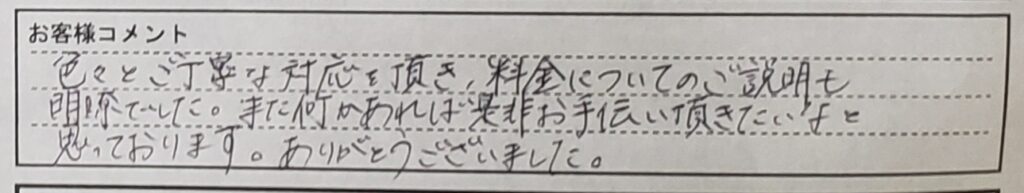 お客様コメント
色々とご丁寧な対応を頂き、料金についてのご説明も
明瞭でした。また何かあれば是非お手伝い頂きたいなと
思っております。ありがとうございました。